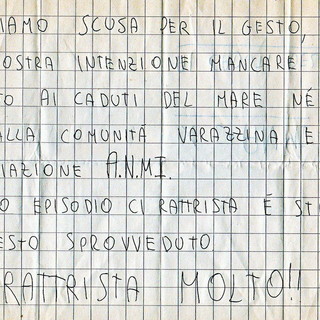 IAMO SCUSA PER IL GESTO,
OSTRA INTENZIONE MANCARE
TO AI CADUTI DEL MARE NÉ
ALLA COMUNITÀ VARAZZINA E
IAZIONE A.N.M.I.
O EPISODIO CI RATTRISTA È ST
ESTO SPROVVEDUTO
RATTRISTA MOLTO!!